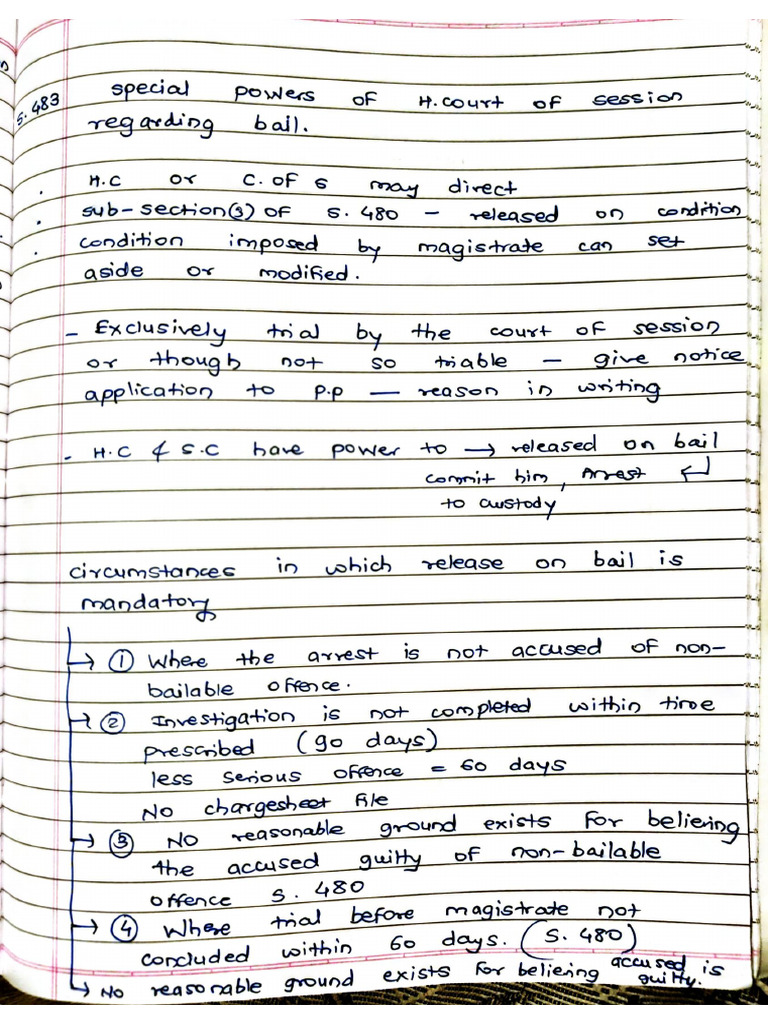 S. 483 special powers of H.court of session
regarding bail.
. H.C or C. of S may direct
. sub-section(3) of S. 480 - released on condition
. condition imposed by magistrate can set
aside or modified.
- Exclusively trial by the court of session
or though not so triable - give notice
application to P.P - reason in writing
- H.C & S.C have power to → released on bail
commit him, Arrest ↵
to custody
circumstances in which release on bail is
mandatory
→ ① Where the arrest is not accused of non-
bailable offence.
→ ② Investigation is not completed within time
prescribed (90 days)
less serious offence = 60 days
No chargesheet file
→ ③ No reasonable ground exists for believing
the accused guilty of non-bailable
offence S. 480
→ ④ Where trial before magistrate not
concluded within 60 days. (S. 480)
→ No reasonable ground exists for believing accused is
guilty.